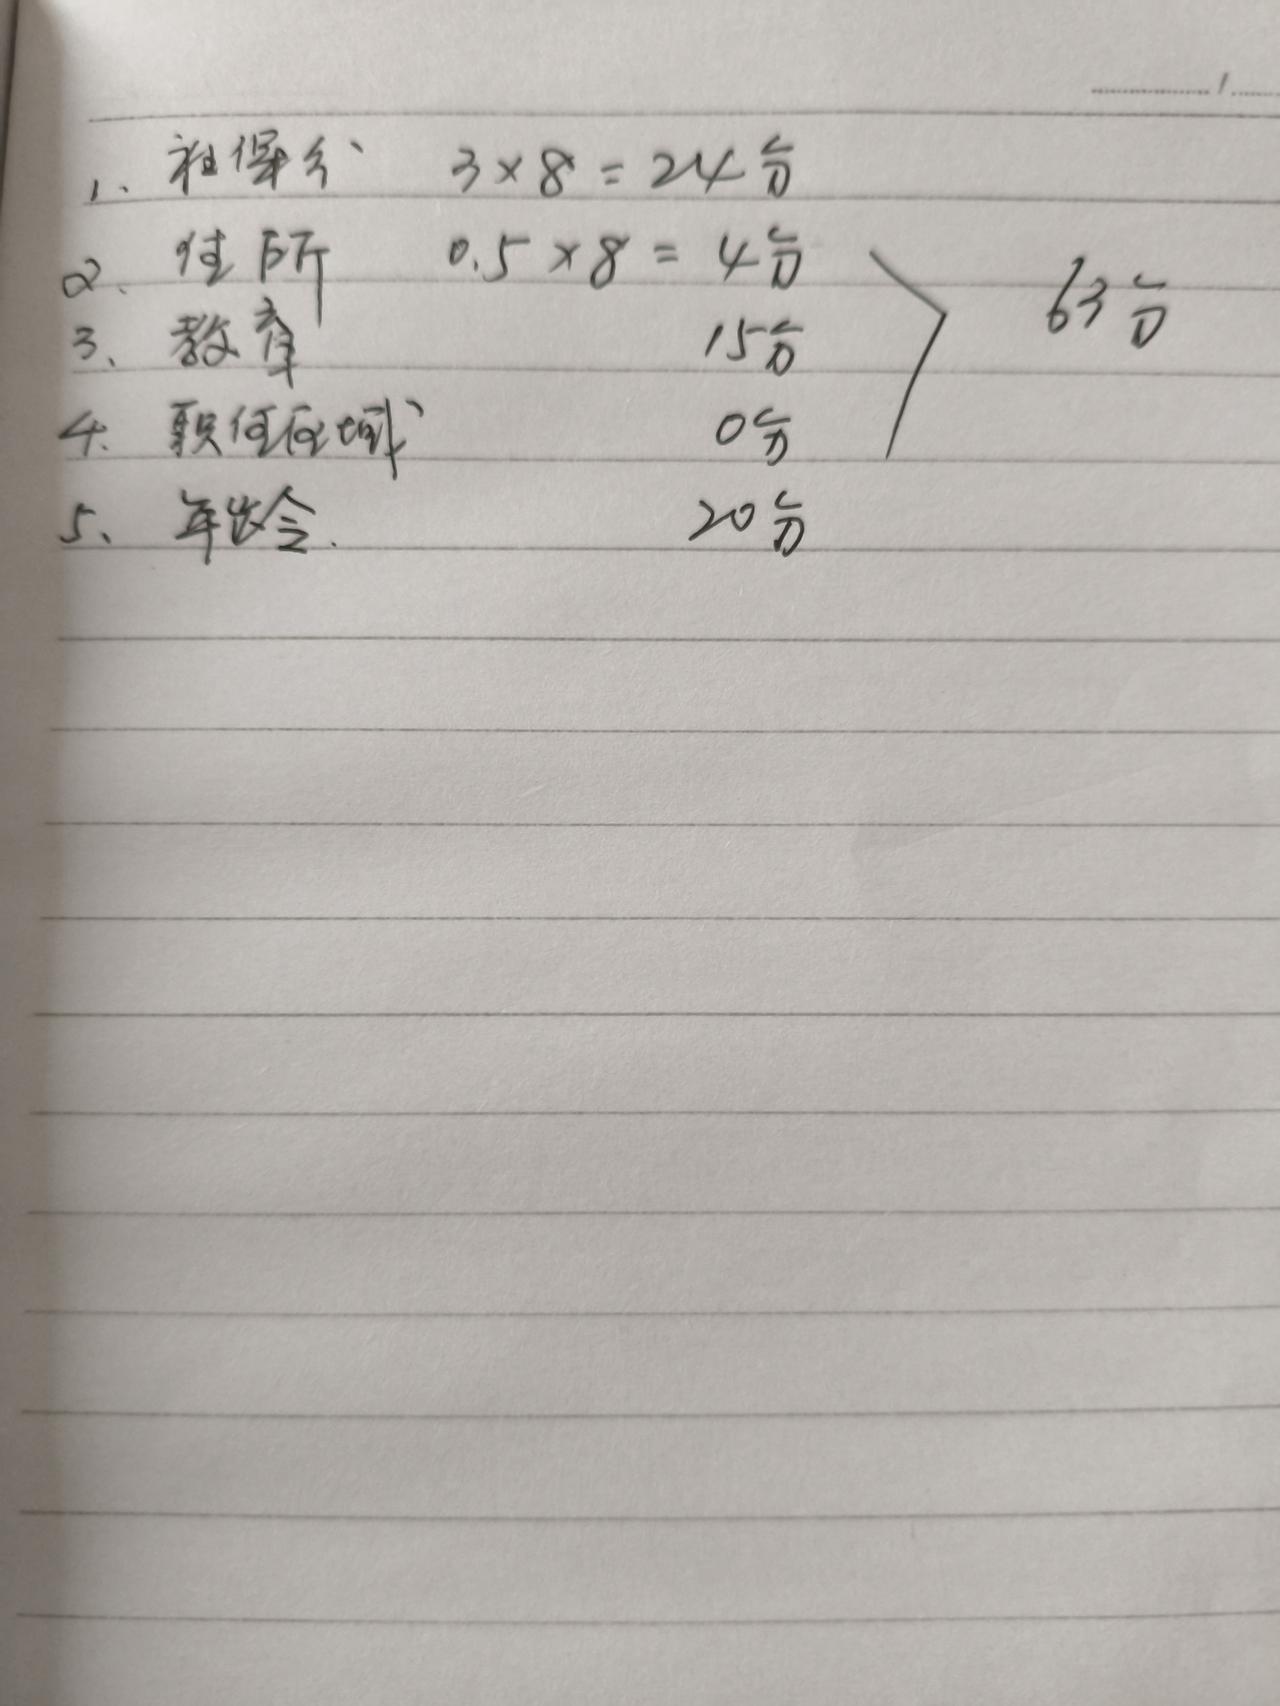 1、社保分 3×8=24分
2、住所 0.5×8=4分
3、教育 15分
63分
4、职住区域 0分
5、年龄 20分